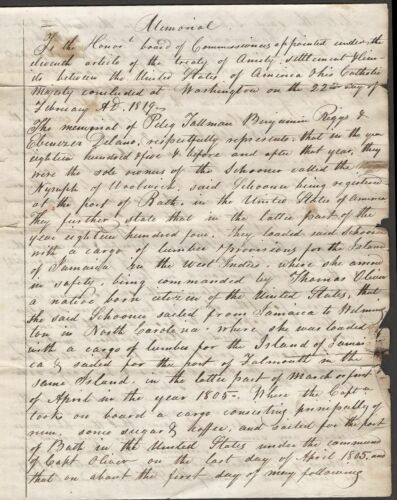 Memorial
To the Honor.l board of Commissioners appointed under the
eleventh article of the treaty of Amity, settlement & limits
between the United States of America & his Catholic
Majesty concluded at Washington on the 22nd day of
February A.D. 1819.
The memorial of Peleg Tallman Benjamin Riggs &
Ebenezer Delano, respectfully represents, that in the year
eighteen hundred & five & before and after that year, they
were the sole owners of the Schooner called the
Nymph of Woolwich, said Schooner being registered
at the port of Bath, in the United States of America
They further state that in the latter part of the
year eighteen hundred four, they loaded said schooner
with a cargo of lumber & provisions for the Island
of Jamaica in the West Indies where she arrived
in safety, being commanded by Thomas Oliver
a native born citizen of the United States, that
the said Schooner sailed from Jamaica to Wilming
ton in North Carolina where she was loaded
with a cargo of lumber for the Island of Jamai
ca & sailed for the port of Falmouth in the
same Island, in the latter part of March or first
of April in the year 1805. Where the Captn
took on board a cargo consisting principally of
rum, some sugar & coffee, and sailed for the port
of Bath in the United States under the command
of Capt Oliver on the last day of April 1805, and
that on about the first day of may following